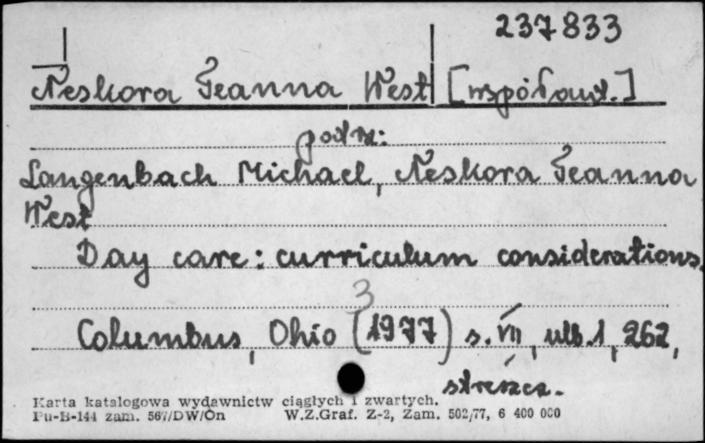 237833
Neskora Jeanna West [współaut.]
podz:
Langenbach Michael, Neskora Jeanna
West
Day care: curriculum considerations.
3
Columbus, Ohio (1977) s. VII, ulb.1, 262,
streszcz.
Karta katalogowa wydawnictw ciągłych i zwartych.
Pu-B-144 zam. 567/DW/On W.Z.Graf. Z-2, Zam. 502/77, 6 400 000